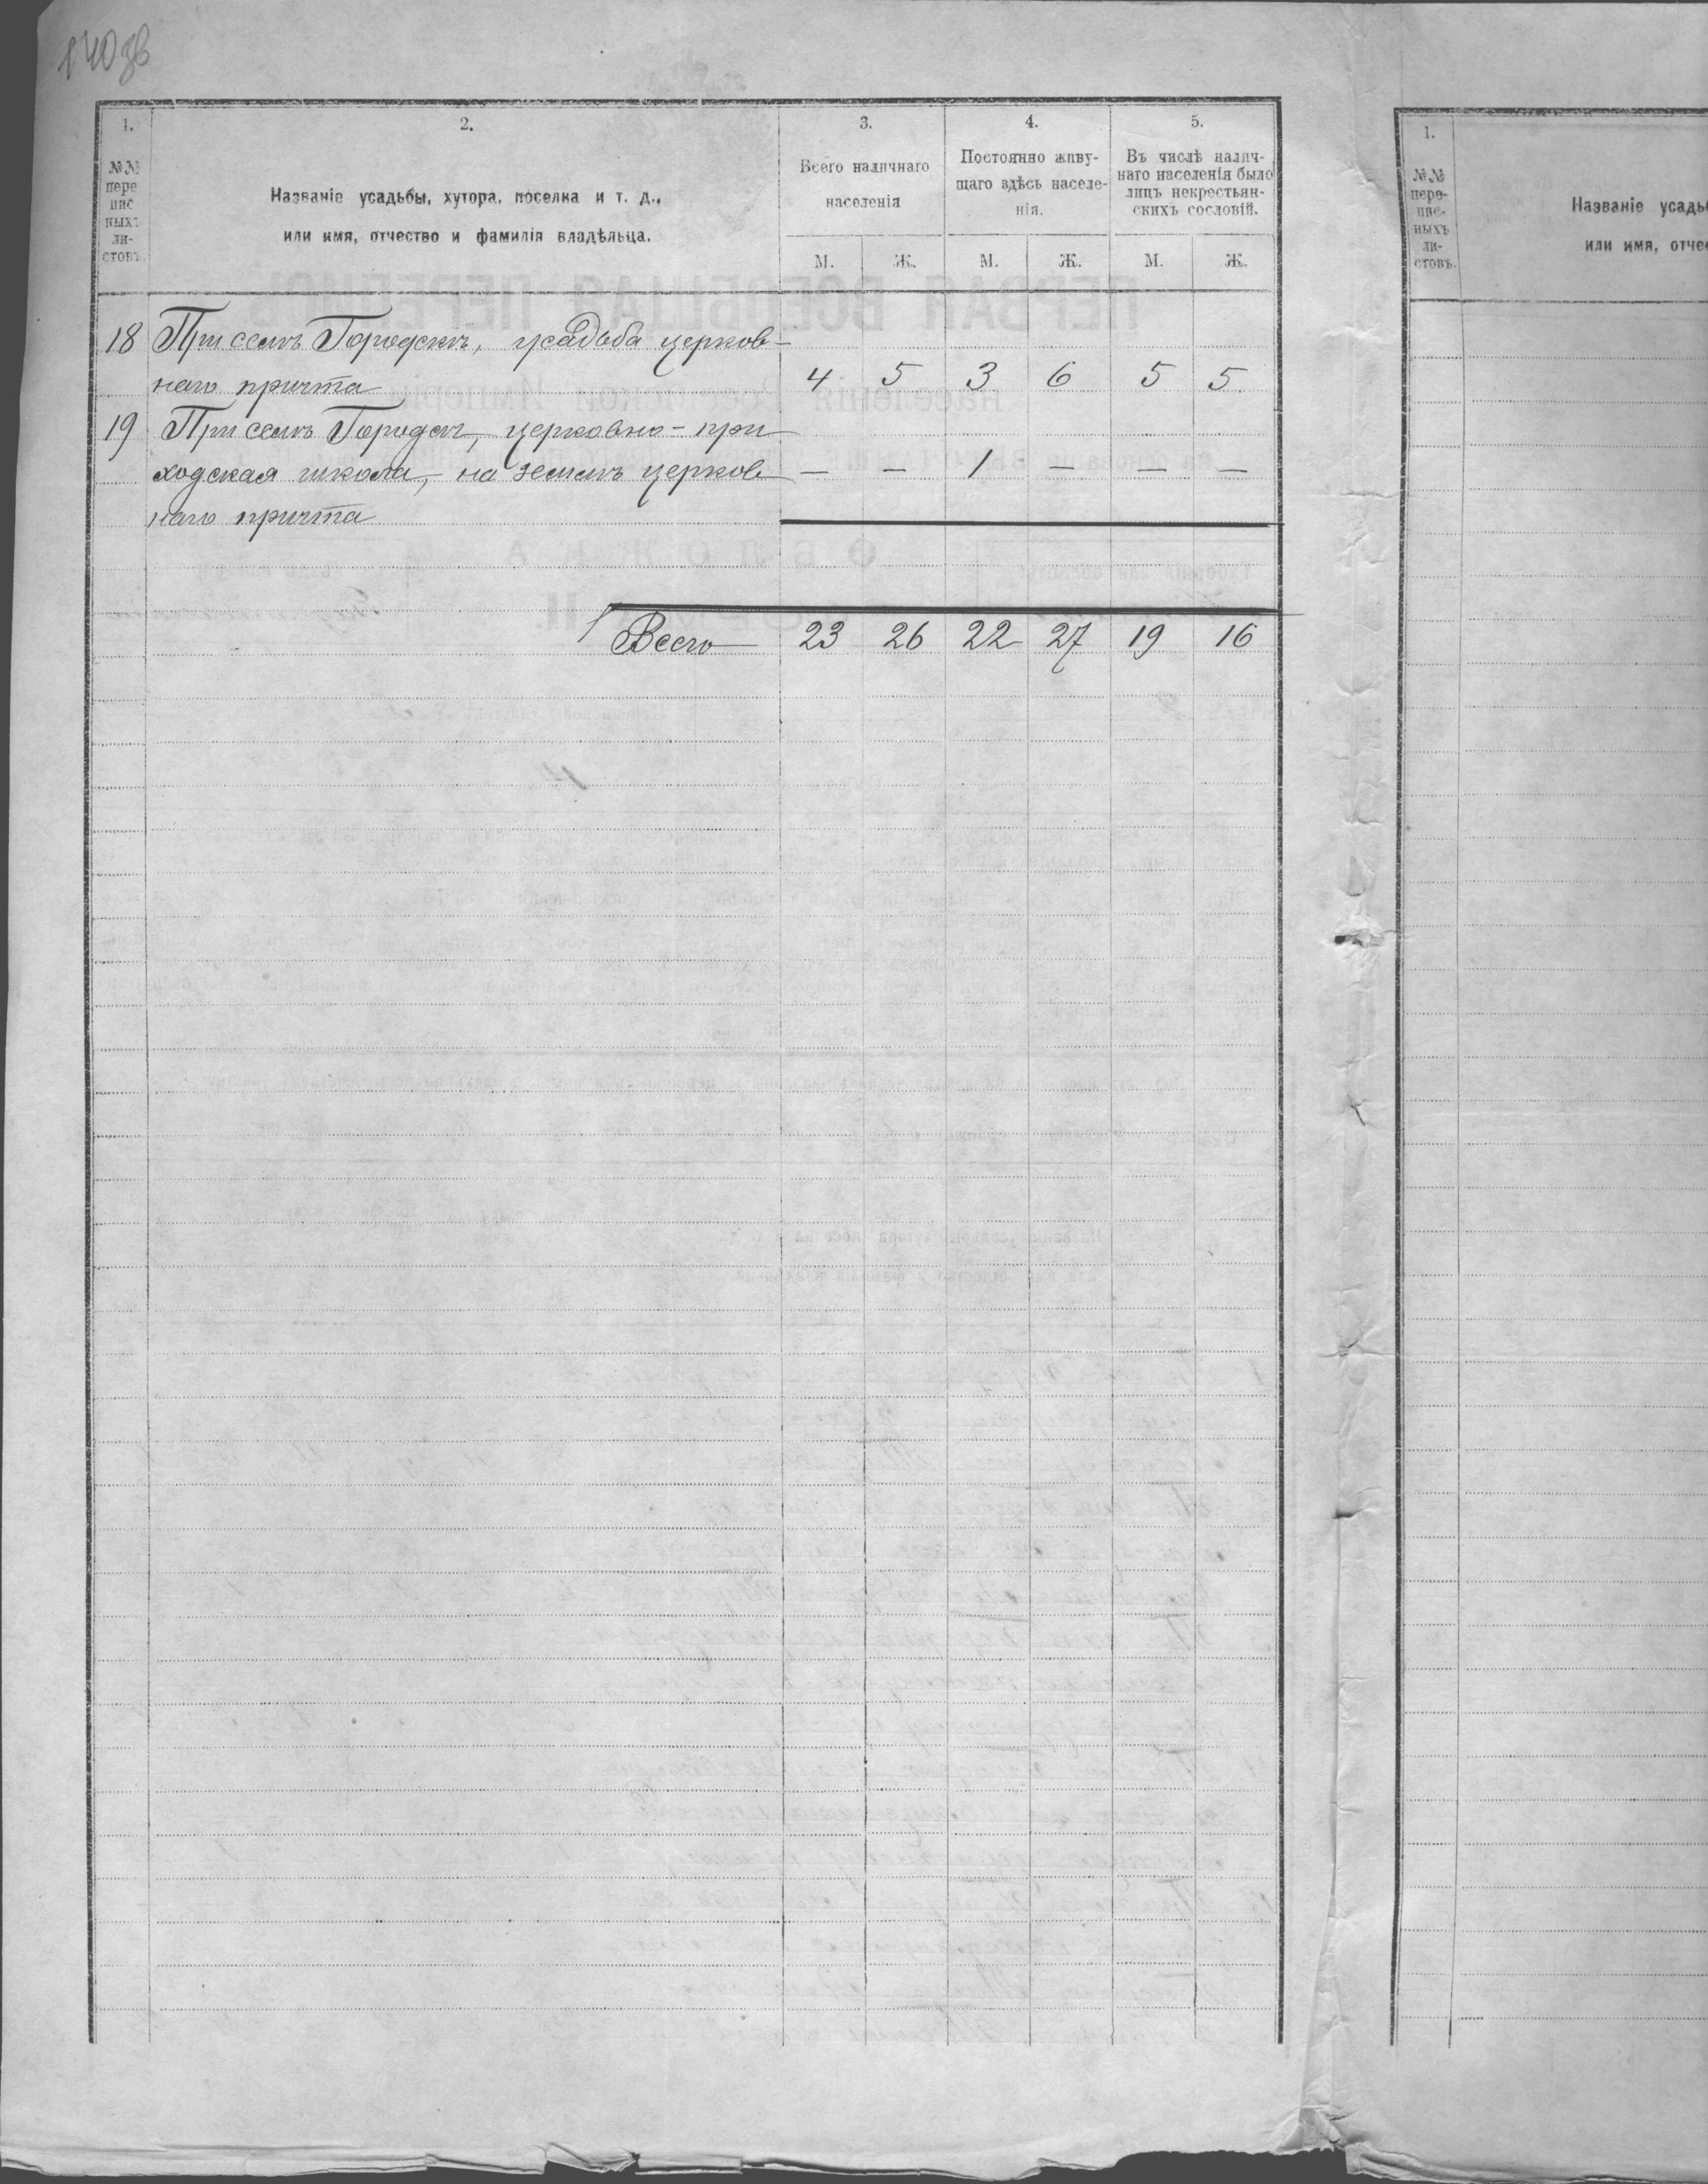 140об
1.
2.
3.
4.
5.
№№ пере пис ныхъ ли- стовъ.
Названіе усадьбы, хутора, поселка и т. д.,
или имя, отчество и фамилія владѣльца.
Всего наличнаго
населенія
Постоянно живу-
щаго здѣсь населе-
нія.
Въ числѣ налич-
наго населенія было
лицъ некрестьян-
скихъ сословій.
М. Ж. М. Ж. М. Ж.
18 При селѣ Городскѣ, усадьба церков-
наго причта 4 5 3 6 5 5
19 При селѣ Городскѣ, церковно-при
ходская школа, на землѣ церков — — 1 — — —
наго причта
Всего 23 26 22 27 19 16
1.
№№
пере-
пис-
ныхъ
ли-
стовъ.
Названіе усадь
или имя, отче